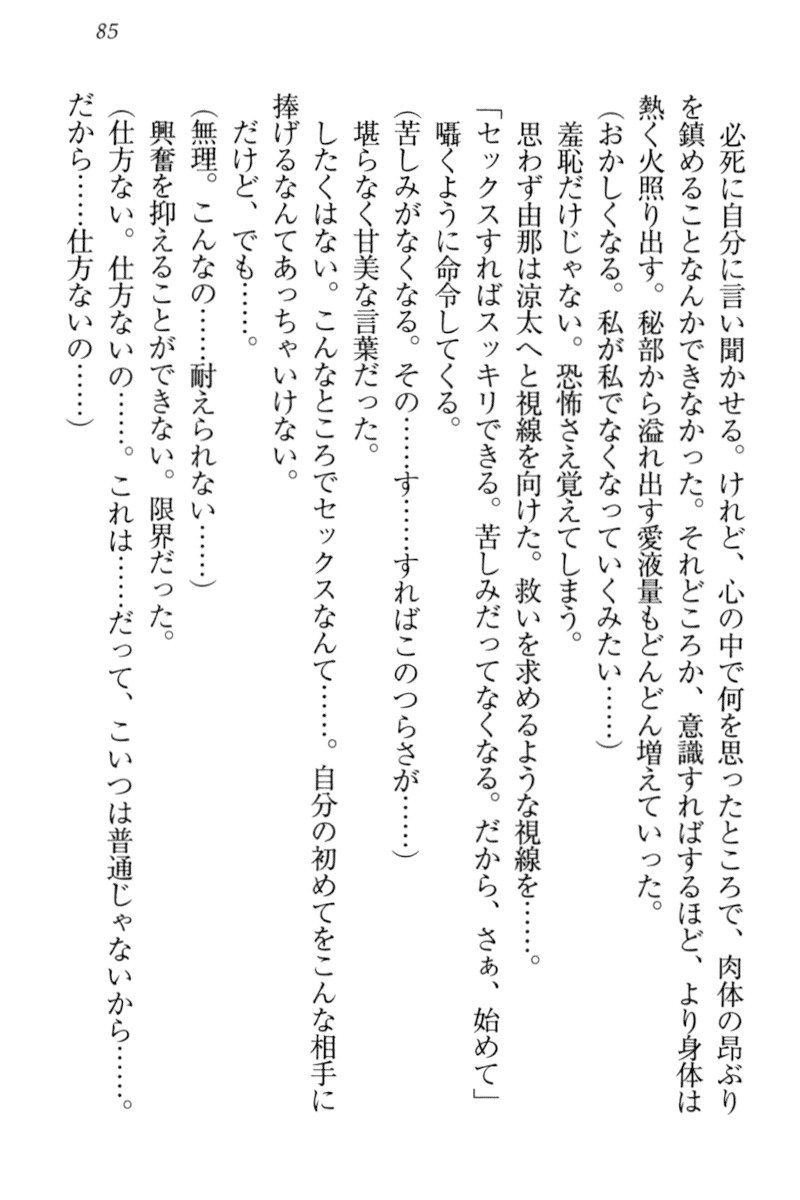 85
必死に自分に言い聞かせる。けれど、心の中で何を思ったところで、肉体の昂ぶり
を鎮めることなんかできなかった。それどころか、意識すればするほど、より身体は
熱く火照り出す。秘部から溢れ出す愛液量もどんどん増えていった。
（おかしくなる。私が私でなくなっていくみたい……）
羞恥だけじゃない。恐怖さえ覚えてしまう。
思わず由那は涼太へと視線を向けた。救いを求めるような視線を……。
「セックスすればスッキリできる。苦しみだってなくなる。だから、さぁ、始めて」
囁くように命令してくる。
（苦しみがなくなる。その……す……すればこのつらさが……）
堪らなく甘美な言葉だった。
したくはない。こんなところでセックスなんて……。自分の初めてをこんな相手に
捧げるなんてあっちゃいけない。
だけど、でも……。
（無理。こんなの……耐えられない……）
興奮を抑えることができない。限界だった。
（仕方ない。仕方ないの……。これは……だって、こいつは普通じゃないから……。
だから……仕方ないの……）